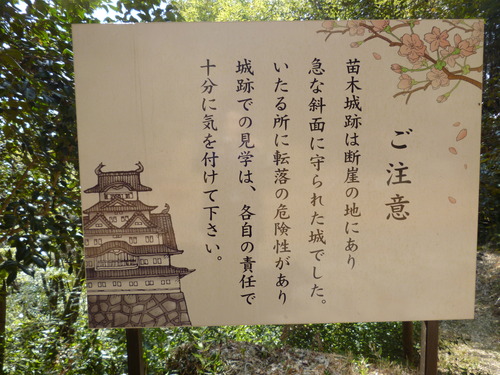 ご注意
苗木城跡は断崖の地にあり
急な斜面に守られた城でした。
いたる所に転落の危険性があり
城跡での見学は、各自の責任で
十分に気を付けて下さい。